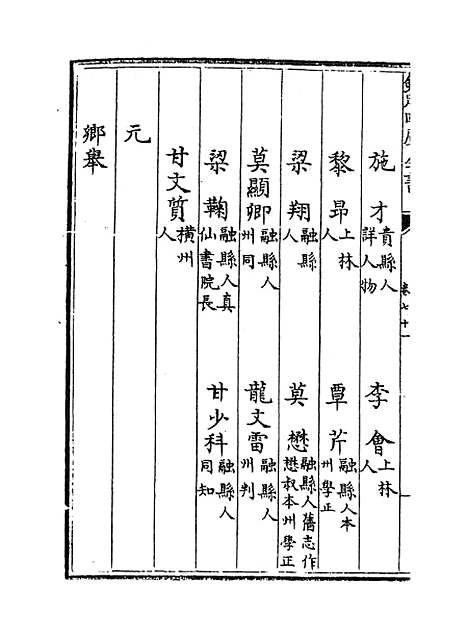 施才貴縣人詳人物　李會上林人
黎昻上林人　覃芹融縣人本州學正
梁翔融縣人　莫懋融縣人舊志作懋叔本州學正
莫顯卿融縣人州同　龍文雷融縣人州判
梁鞠融縣人真仙書院長　甘少科融縣人同知
甘文質橫州人
元
鄉舉